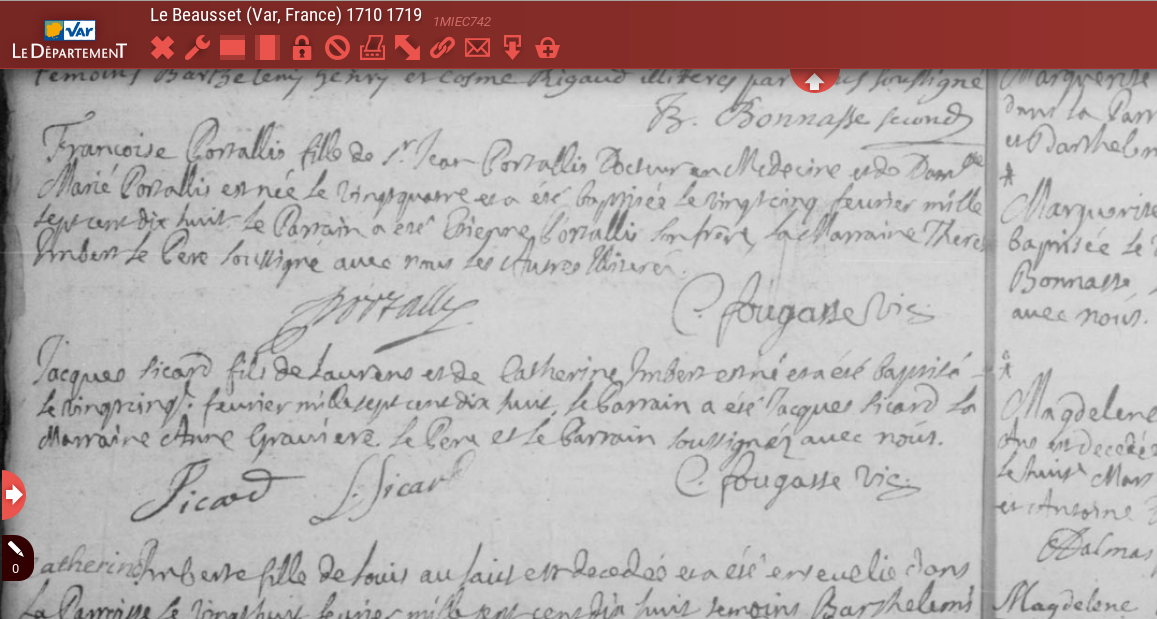 Le Beausset (Var, France) 1710 1719
1MIEC742
VAR
LE DÉPARTEMENT
temoins Barthelemy henry et Cosme Rigaud illiteres par nous soussigné
B. Bonnasse second
Francoise Portallis fille de Sr. Jean Portallis Docteur en Medecine et de Damlle
Marie Portallis est née le vingtquatre et a été baptisée le vingtcinq fevrier mille
sept cent dix huit le Parrain a eté Etienne Portallis son frere la Marraine Therese
Imbert le Pere soussigné avec nous les autres Illiterés.
Portallis
C. fougasse vic.
Jacques Sicard fils de Laurens et de Catherine Imbert est né et a été baptisé
le vingtcinq fevrier mille sept cent dix huit, le Parrain a été Jacques Sicard la
Marraine Anne Graviere. le Pere et le Parrain soussignéz avec nous.
Sicard J. Sicard
C. fougasse vic.
Catherine Imberte fille de Louis au Jait est decedée et a été ensevelie dans
La Parroisse le vingt huit fevrier mille sept cent dix huit temoins Barthelemi
Marguerite
dans la Parr
et Barthelm
Marguerite
baptisée le
Bonnasse,
avec nous.
Magdelene
Ans est decedée
le huit Mars
et Antoine
Dalmas
Magdelene
0